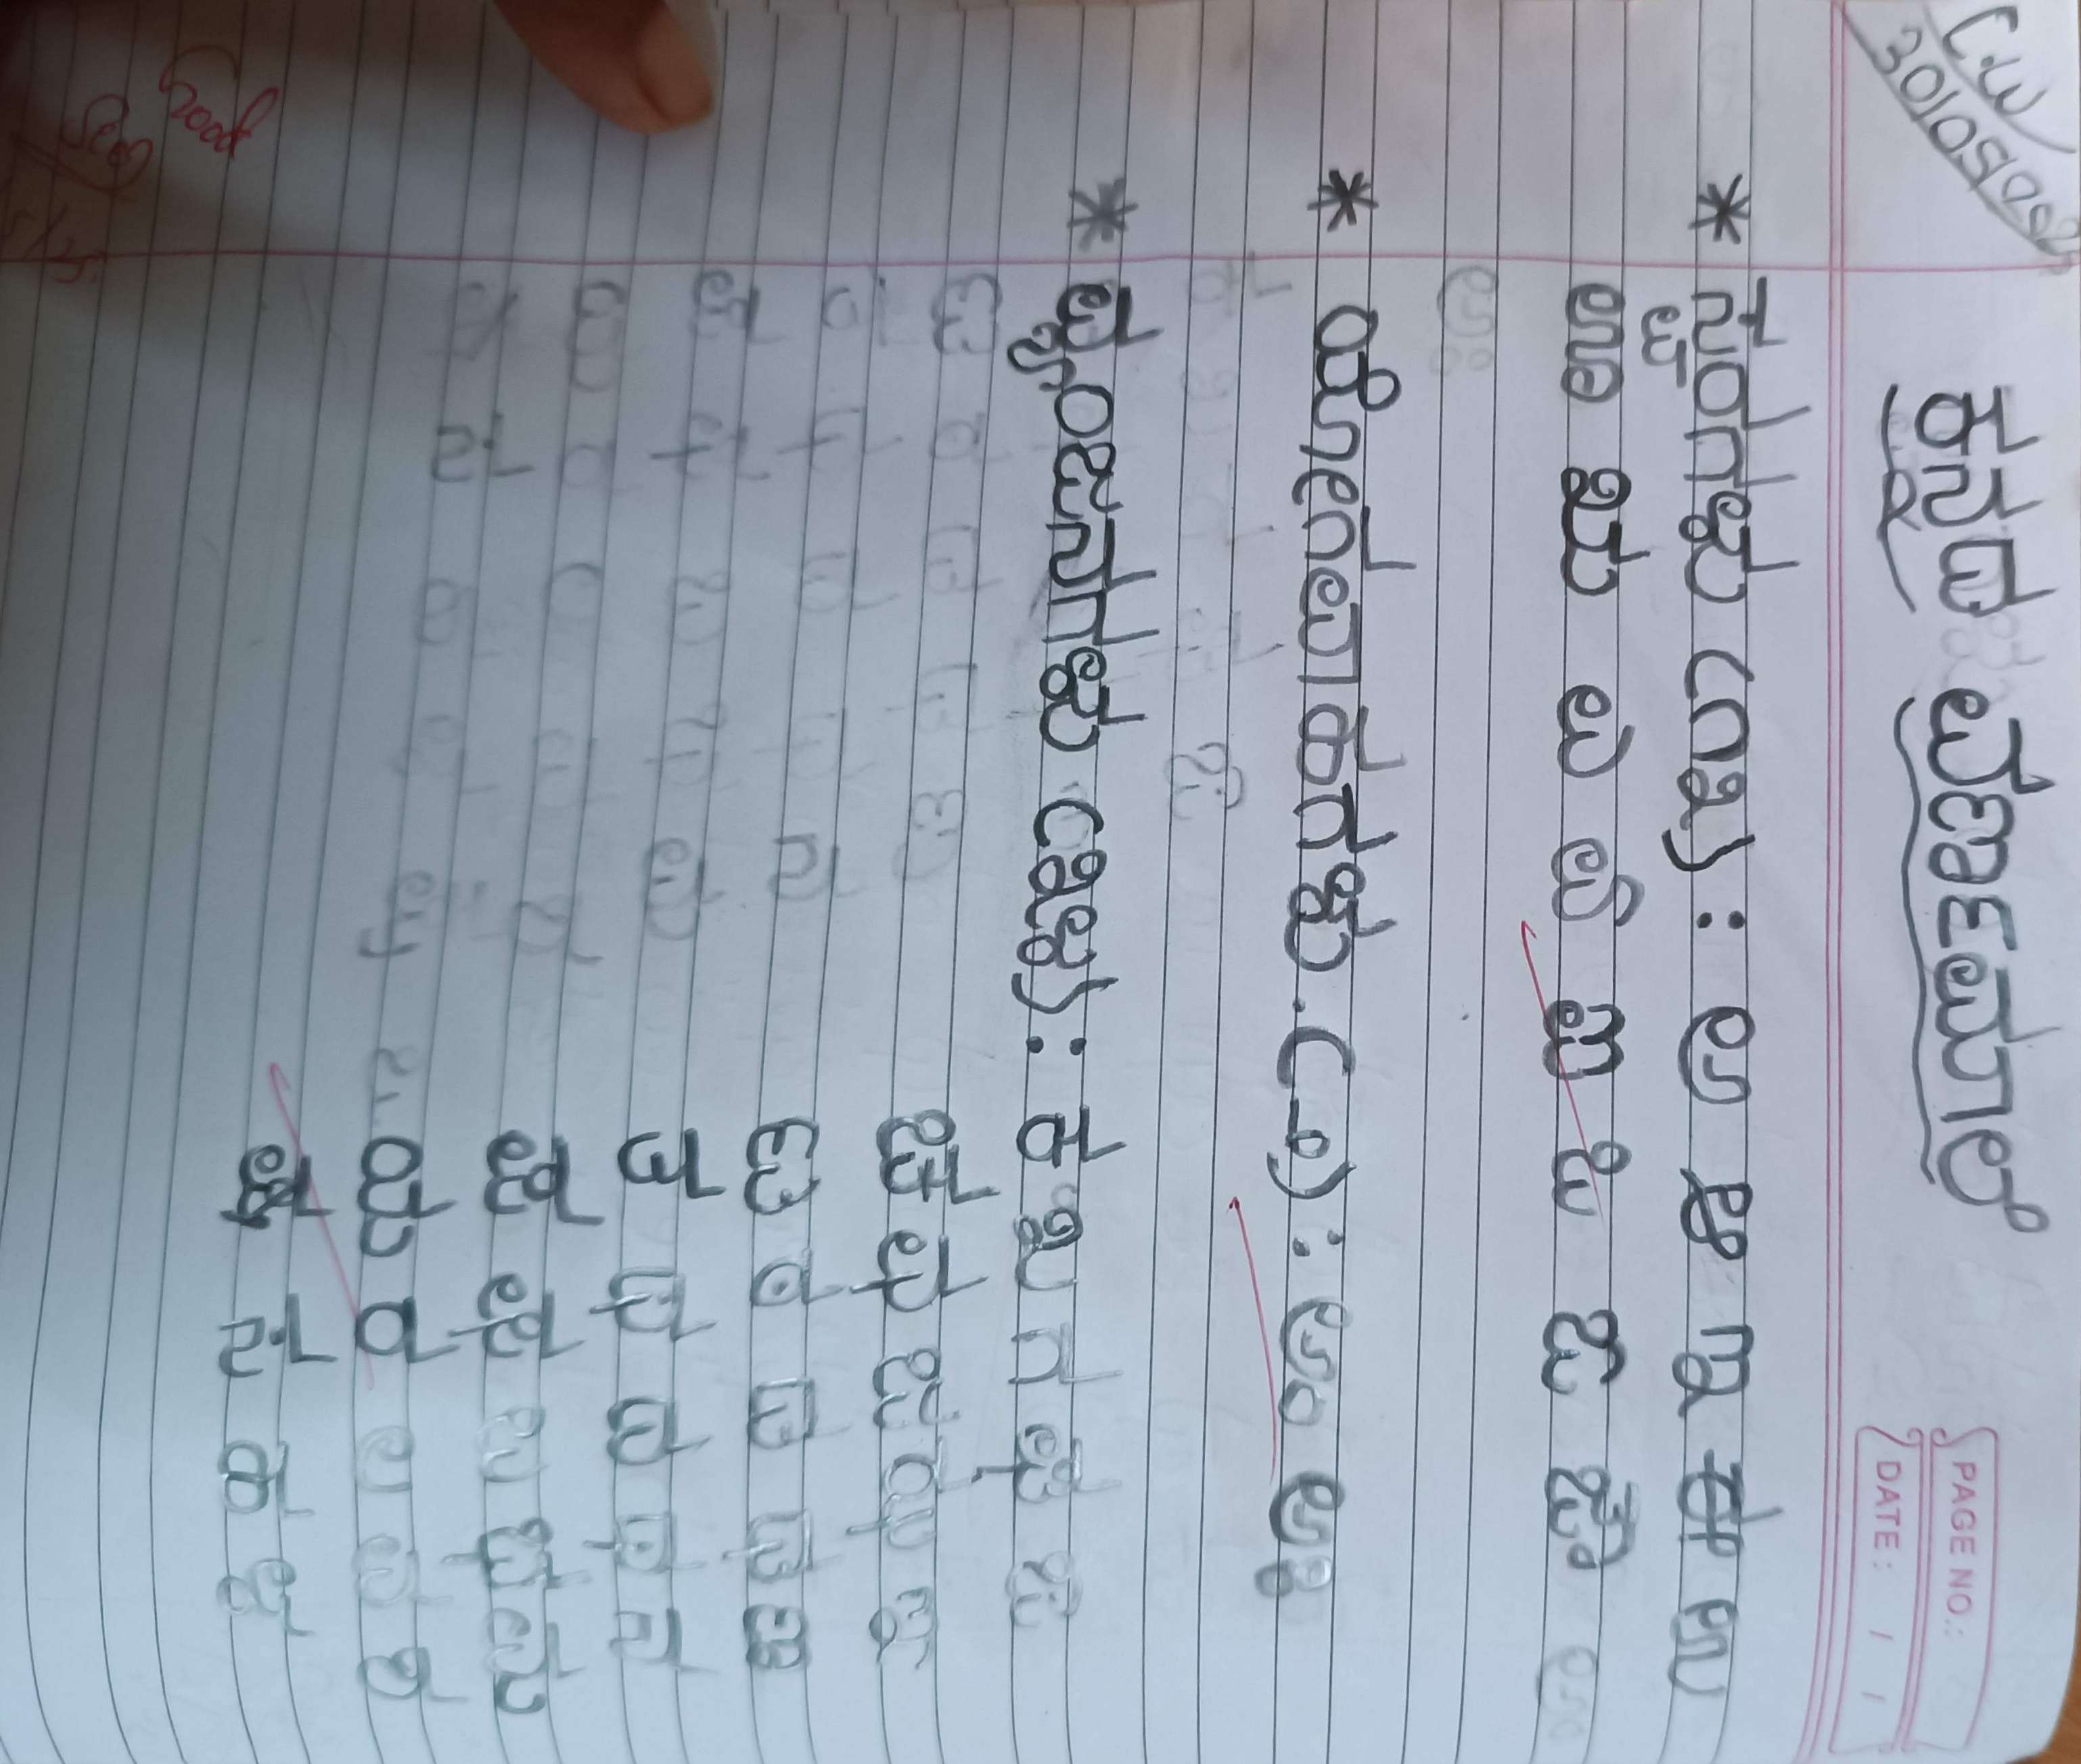 C.W
30/05/2025
PAGE NO.:
DATE: / /
ಕನ್ನಡ ವರ್ಣಮಾಲೆ
* ಸ್ವರಗಳು (೧೩) : ಅ ಆ ಇ ಈ ಉ
ಊ ಋ ಎ ಏ ಐ ಒ ಓ ಔ
* ಯೋಗವಾಹಗಳು. (೨) : ಅಂ ಅಃ
* ವ್ಯಂಜನಗಳು (೩೪) : ಕ ಖ ಗ ಘ ಙ
ಚ ಛ ಜ ಝ ಞ
ಟ ಠ ಡ ಢ ಣ
ತ ಥ ದ ಧ ನ
ಪ ಫ ಬ ಭ ಮ
ಯ ರ ಲ ವ ಶ
ಷ ಸ ಹ ಳ
good